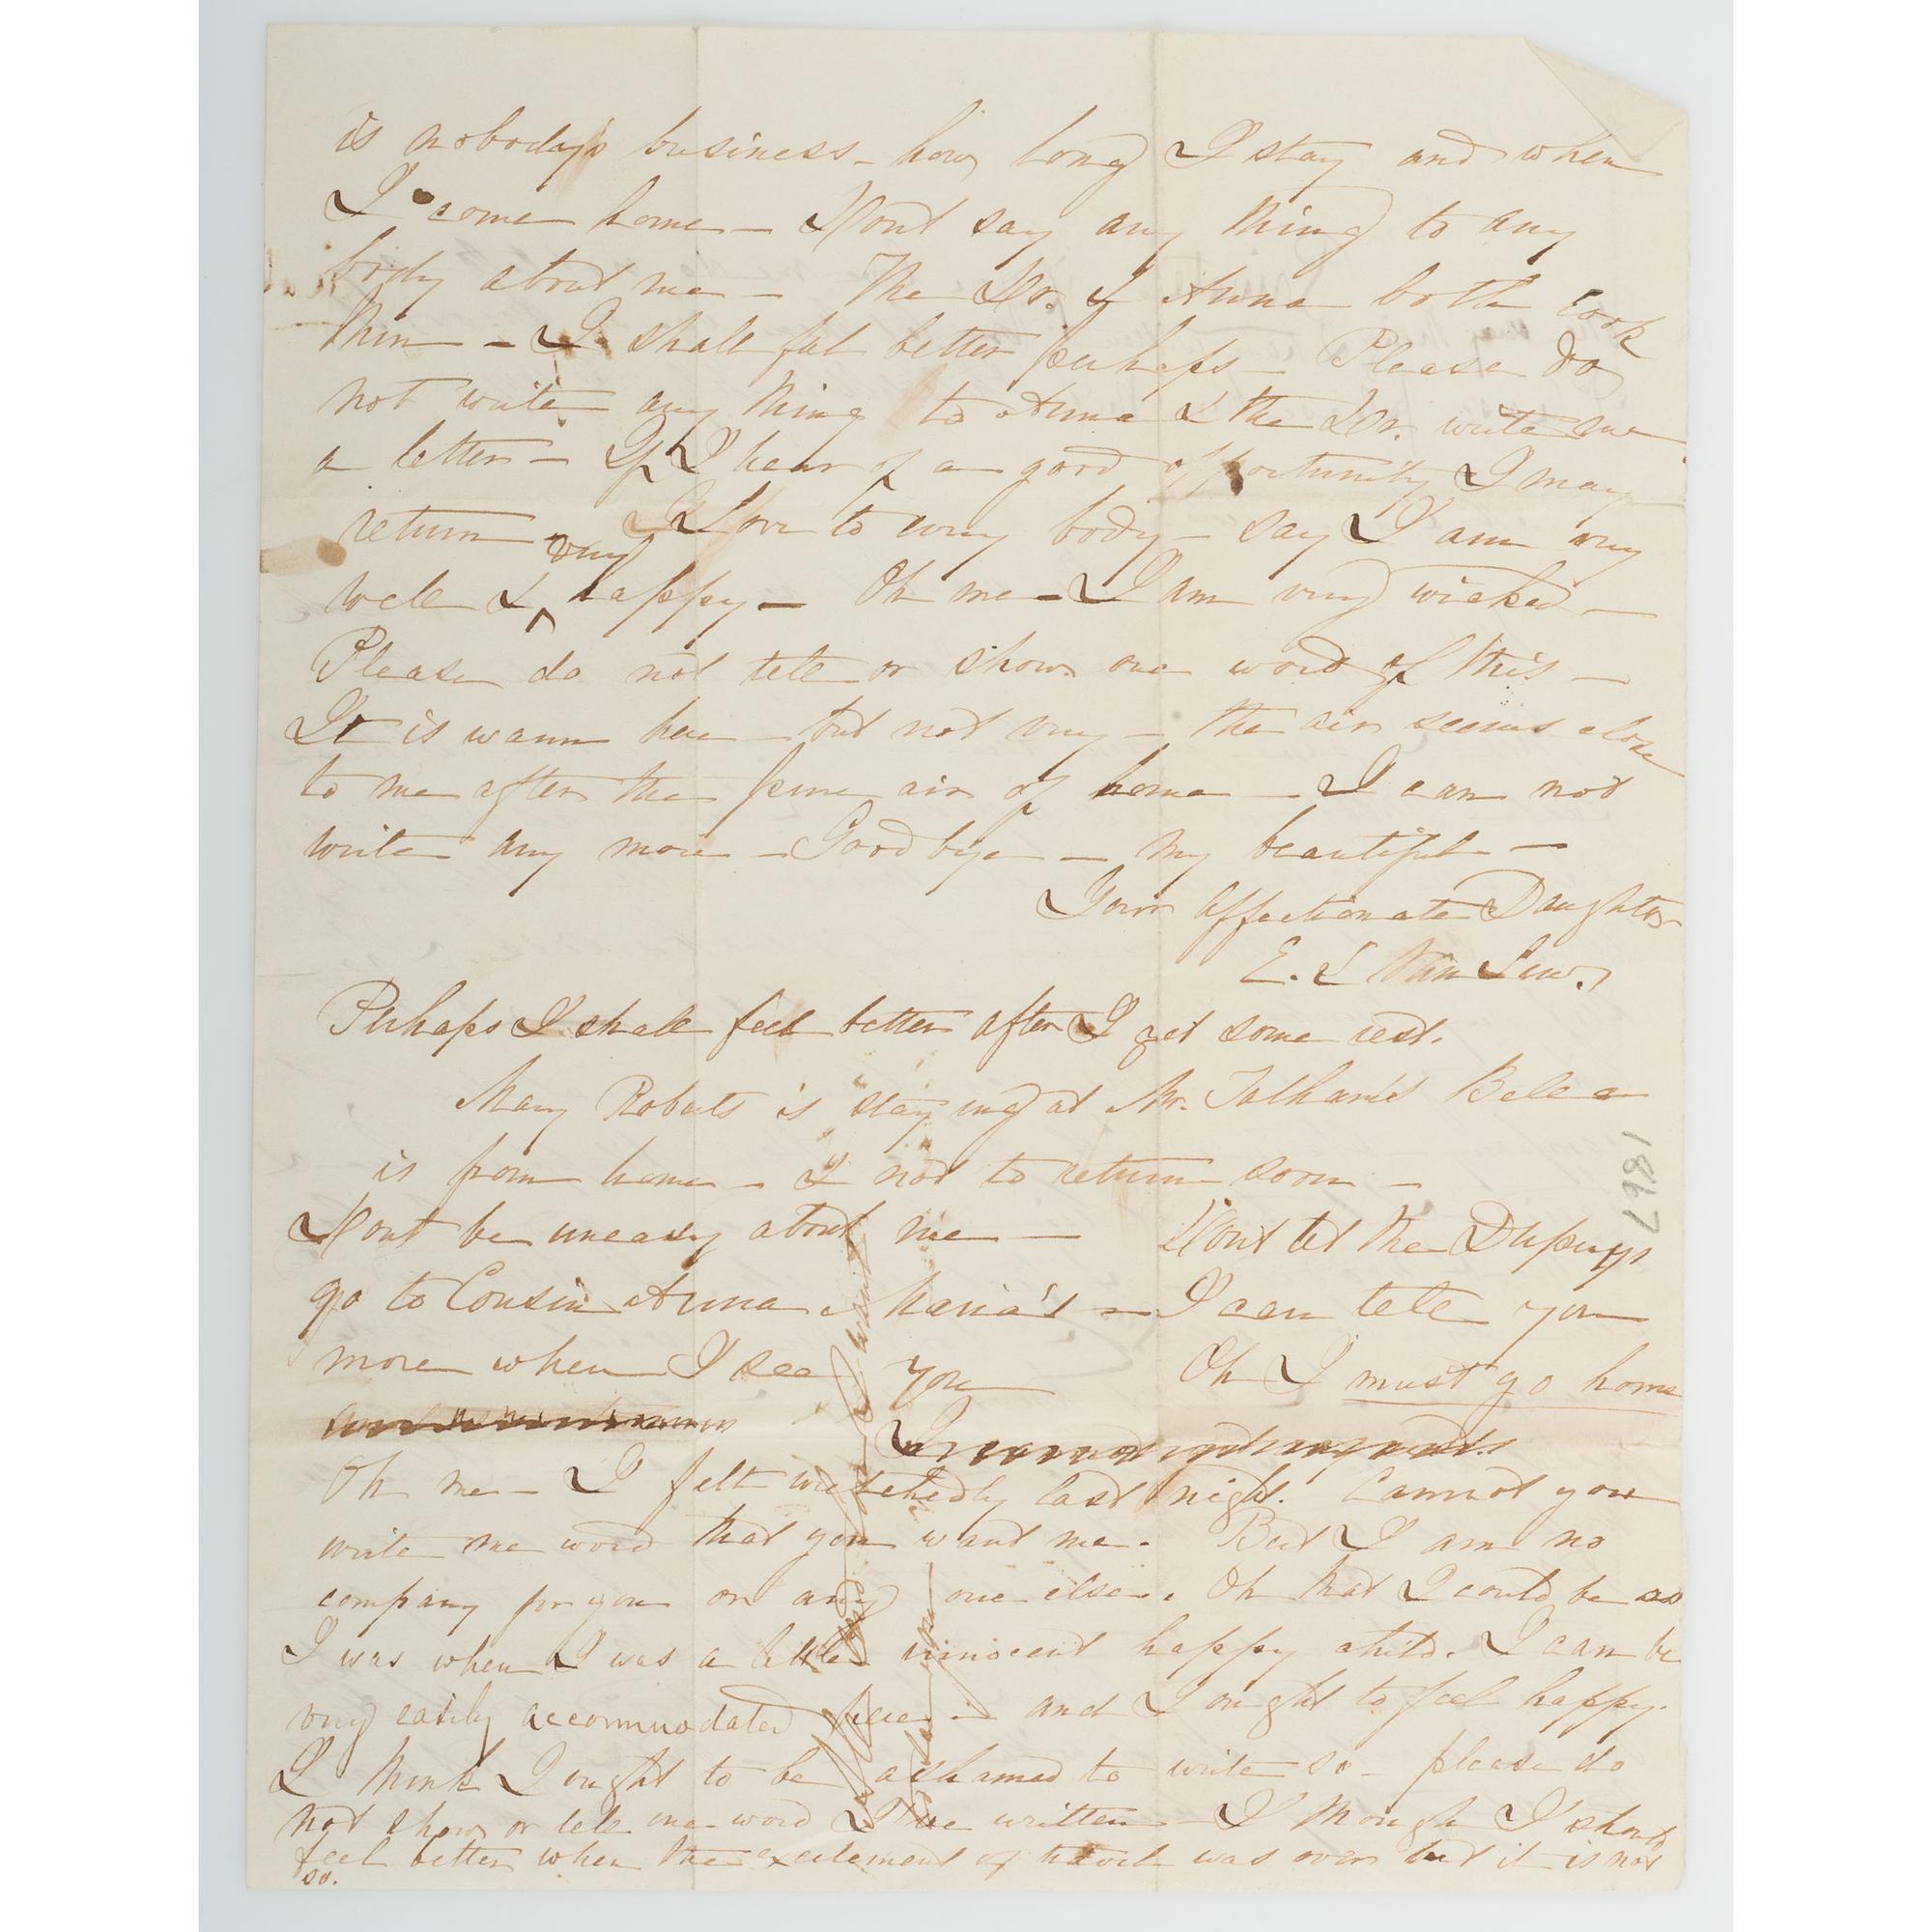 is nobody's business – how long I stay and when
I come home – Dont say any thing to any
body about me – The Dr. & Anna both look
thin – I shall feel better perhaps – Please do
not write any thing to Anna & the Dr. write me
a letter – If I hear of a good opportunity I may
return – Love to every body – say I am very
well & very happy – Oh me – I am very wicked –
Please do not tell or show one word of this –
It is warm here – but not very – the air seems close
to me after the pure air of home – I can not
write any more – Good bye – my beautiful –
Your affectionate Daughter
E. L Van Lew.
Perhaps I shall feel better after I get some rest.
Mary Roberts is staying at Mr. Bella
is from home – & not to return soon –
Dont be uneasy about me – Dont let the Dupuys
go to Cousin Anna Maria's – I can tell you
more when I see you Oh I must go home
Oh me – I felt wretchedly last night. Cannot you
write me word that you want me. But I am no
company for you or any one else. Oh that I could be as
I was when I was a little innocent happy child. I can be
very easily accommodated here – and I ought to feel happy.
I think I ought to be ashamed to write so – please do
not show or tell one word I've written – I though I should
feel better when the excitement of travel was over but it is not
so.
1867